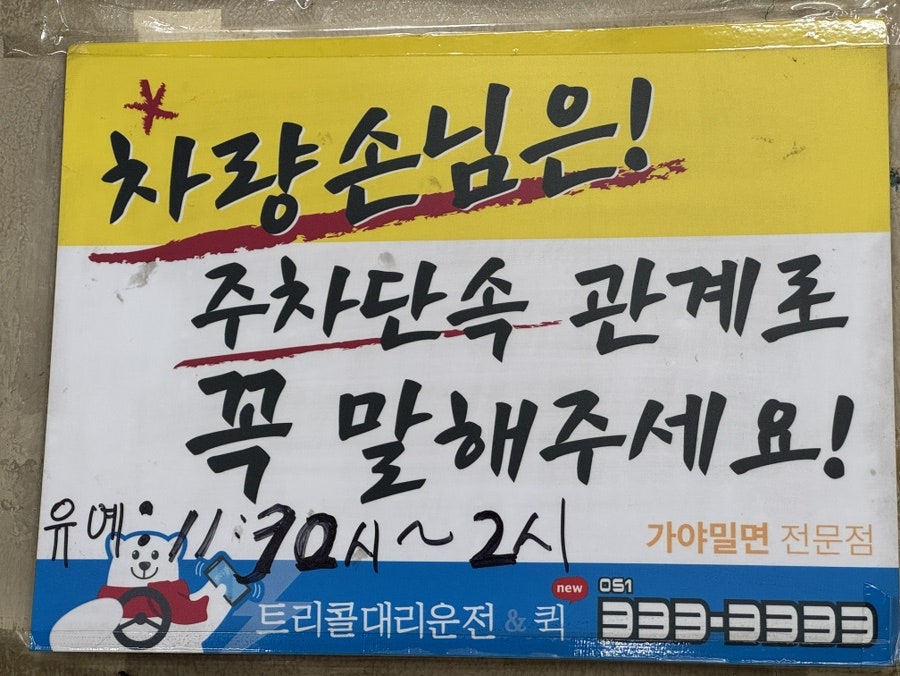 *차량손님은!
주차단속 관계로
꼭 말해주세요!
유예: 11:30시~2시
가야밀면 전문점
트리콜대리운전 & 퀵 new
051 333-3333